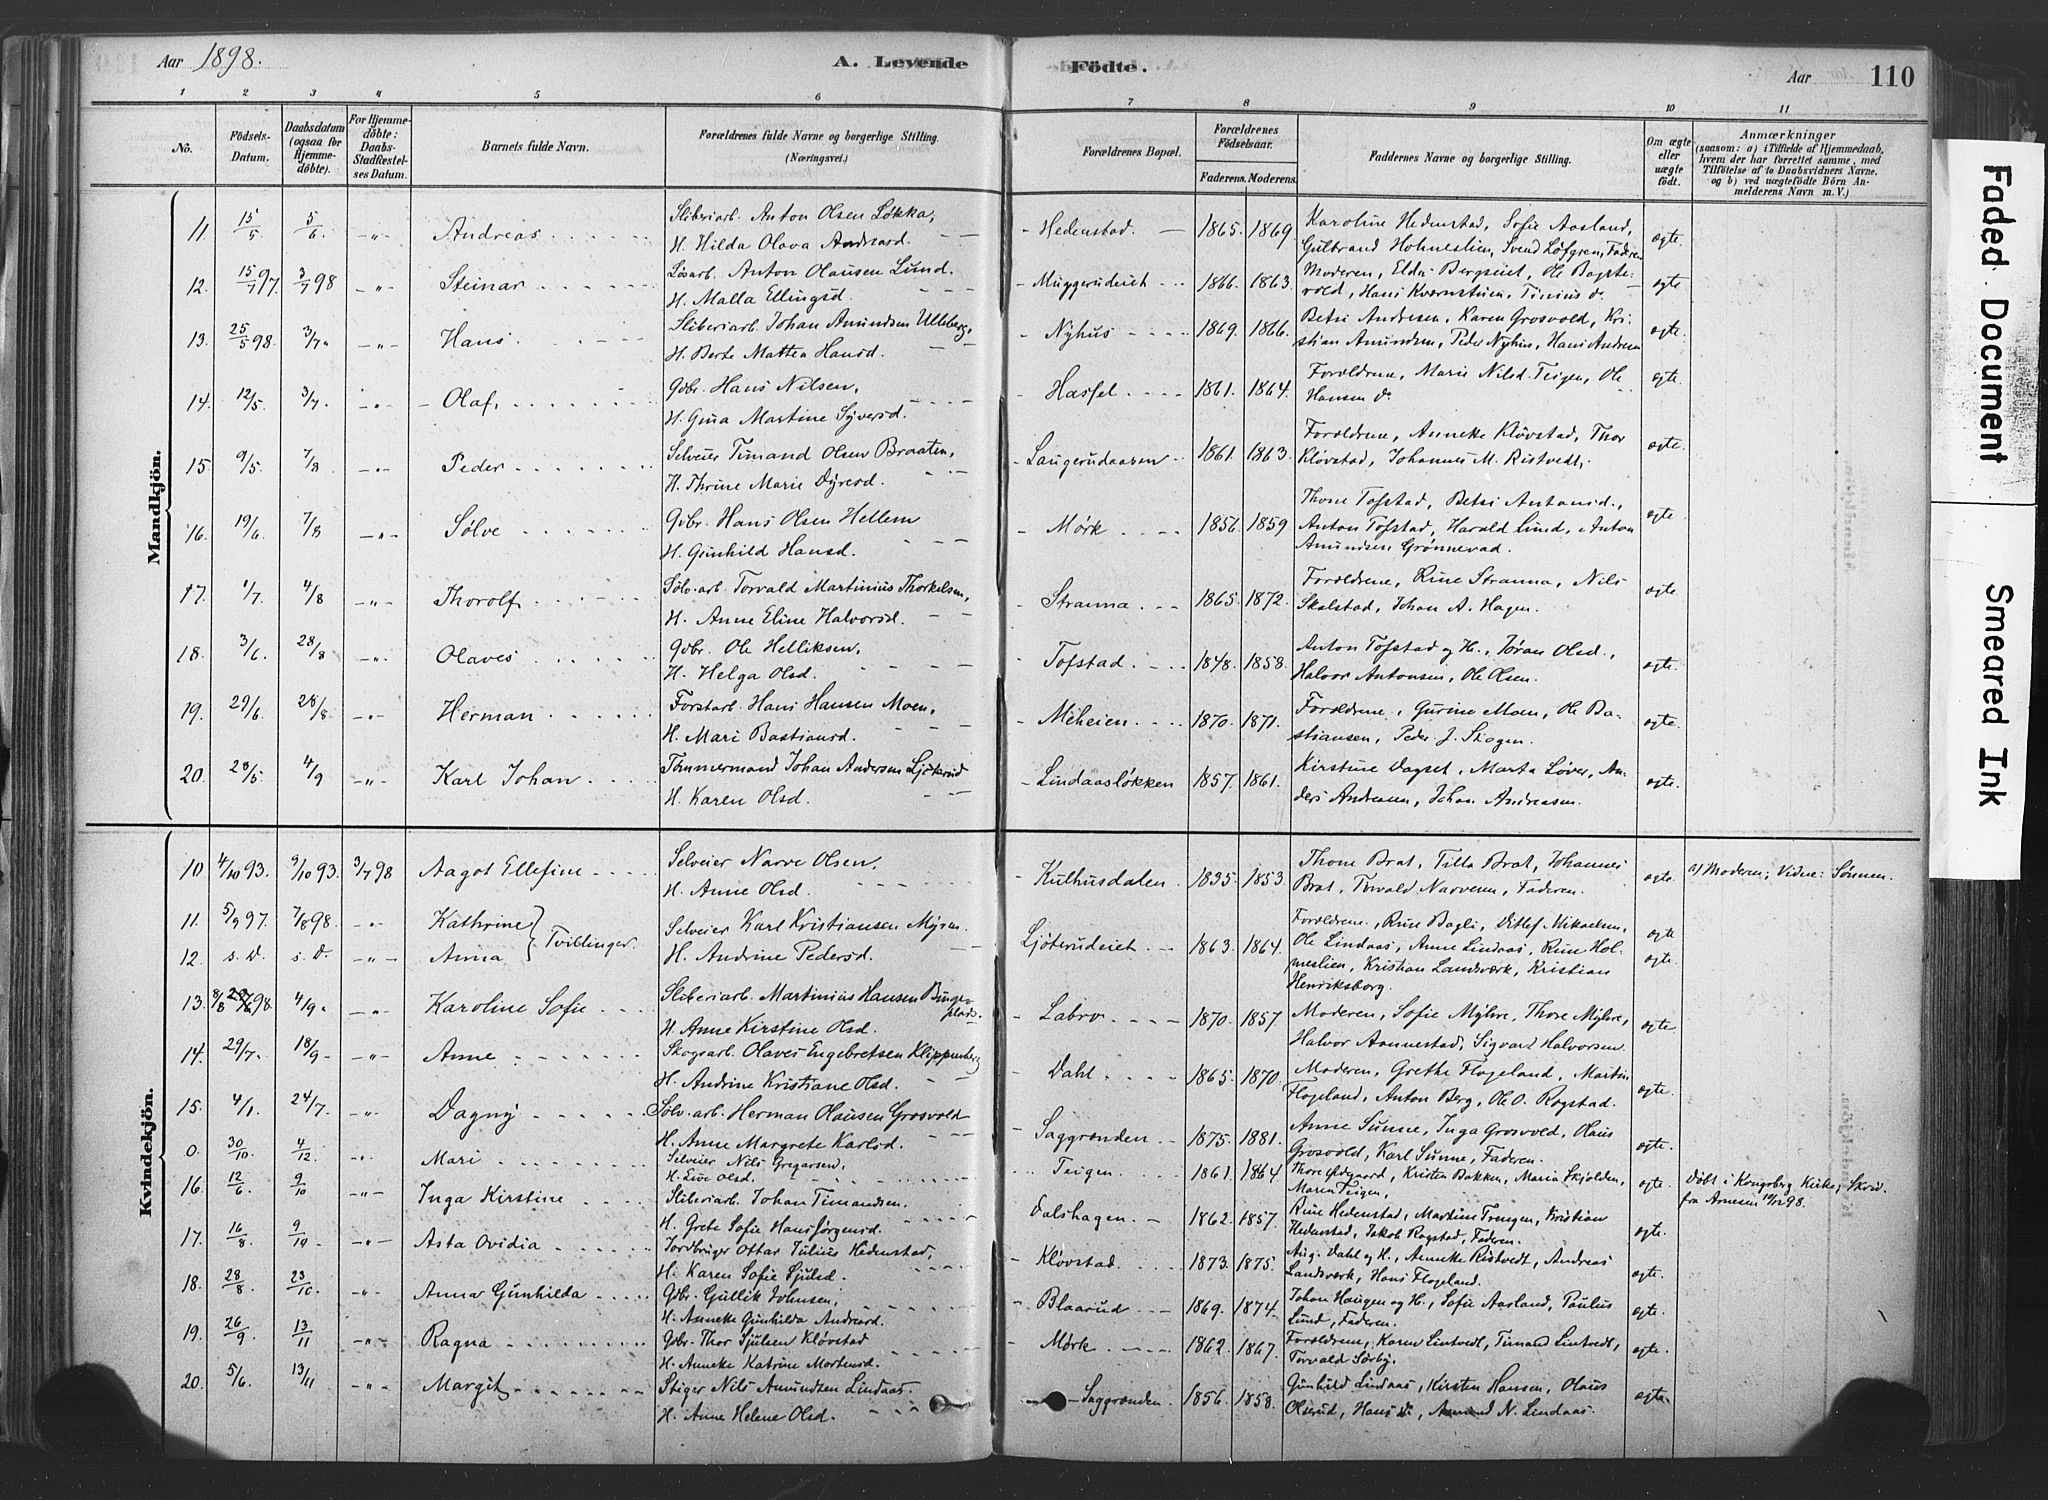 Aar 1898.
A. Levende
Födte.
Aar
110
1 2 3 4 5 6 7 8 9 10 11
No.
Födsels-Datum.
Daabsdatum (ogsaa for Hjemme-döbte).
For Hjemme-döbte: Daabs-Stadfæstel-ses Datum.
Barnets fulde Navn.
Forældrenes fulde Navne og borgerlige Stilling. (Næringsvei.)
Forældrenes Bopæl.
Forældrenes Födselsaar.
Faderens. Moderens.
Faddernes Navne og borgerlige Stilling.
Om ægte eller uægte födt.
Anmærkninger
(saasom: a) i Tilfælde af Hjemmedaab, hvem der har forrettet samme, med Tilföielse af to Daabsvidners Navne. og b) ved uægtefödte Börn An-melderens Navn m. V.)
Mandkjön.
11. 15/5 5/6 -"- Andreas. Sliberiarb. Anton Olsen Løkka, Hedenstad. 1865. 1869 Karoline Hedenstad, Sofie Aasland, ægte.
H. Hilda Olava Andreasd. Gulbrand Holmeslien, Svend Löfgren, Faderen
12. 15/7 97. 3/7 98 -"- Steinar Løsarb. Anton Olausen Lund. Muggerudeiet 1866. 1863. Moderen, Elder Bergseiet, Ole Bagste- ægte.
H. Malla Ellingsd. vold, Hans Kværnstuen, Tinius do.
13. 25/5 98. 3/7 " -"- Hans. Sliberiarb. Johan Amundsen Ulleberg, Nyhus 1869. 1866. Betsi Andresen, Karen Grosvold, Kri- ægte.
H. Berte Mattea Hansd. stian Amundsen, Peder Nyhus, Hans Andresen
14. 12/5. 3/7. -"- Olaf. Gdbr. Hans Nilsen, Hassel. 1861. 1864. Forældrene, Marie Nilsd. Teigen, Ole ægte.
H. Gina Martine Syversd. Hansen do
15. 9/5. 7/8 -"- Peder Selveier Timand Olsen Braaten, Laugerudaasen 1861. 1863. Forældrene, Anneke Kløvstad, Thor ægte.
H. Thrine Marie Dyresd. Kløvstad, Johannes M. Ristvedt.
16. 19/6 7/8 -"- Sølve Gdbr. Hans Olsen Hellem Mørk 1856. 1859 Thone Tofstad, Betsi Antonsd., ægte.
H. Gunhild Hansd. Anton Tofstad, Harald Lund, Anton
Amundsen Grønnevad.
17. 1/7. 4/8 -"- Thorolf Sølv.arb. Torvald Martinius Thorkelsen, Stranna 1865. 1872. Forældrene, Rine Stranna, Nils ægte.
H. Anne Eline Halvorsd. Skalstad, Johan A. Hagen.
18. 3/6. 28/8 -"- Olaves Gdbr. Ole Helliksen, Tofstad 1848. 1858. Anton Tofstad og H., Jøran Olsd., ægte.
H. Helga Olsd. Halvor Antonsen, Ole Olsen.
19. 29/6. 28/8 -"- Herman Forstarb. Hans Hansen Moen, Meheien. 1870. 1871. Forældrene, Gurine Moen, Ole Ba- ægte.
H. Mari Bastiansd. stiansen, Peder J. Skogen.
20. 28/5. 4/9 -"- Karl Johan Tømmermand Johan Andersen Ljøterud Lindaasløkken 1857. 1861. Kirstine Dagset, Marta Løver, An- ægte.
H. Karen Olsd. ders Andresen, Johan Andreasen.
Kvindekjön.
10 4/10 93. 9/10 93. 3/7 98 Aagot Ellefine Selveier Narve Olsen. Kulhusdalen 1835. 1853. Thone Brat, Tilla Brat, Johannes ægte. a) Moderen; Vidne: Sønnen.
H. Anne Olsd. Brat, Torvald Narvesen, Faderen.
11. 5/9 97. 7/8 98. -"- Kathrine } Tvillinger Selveier Karl Kristiansen Myren. Ljøterudeiet 1863. 1864. Forældrene, Rine Bagli, Ditlef Mikaelsen, ægte
12. s. D. s. D. -"- Anna H. Andrine Pedersd. Ole Lindaas, Anne Lindaas, Rine Hol- ægte.
meslien, Kristian Landsverk, Kristian
Henriksborg.
13. 8/8 98. 4/9. -"- Karoline Sofie Sliberiarb. Martinius Hansen Bingeplads. Labro 1870. 1857. Moderen, Sofie Myhre, Thore Myhre, ægte.
H. Anne Kirstine Olsd. Halvor Aannestad, Sigvart Halvorsen.
14. 29/7. 18/9 -"- Anne Skogsarb. Olaves Engebretsen Klippenberg Dahl 1865. 1870. Moderen, Grethe Flogeland, Martin ægte.
H. Andrine Kristiane Olsd. Flogeland, Anton Berg, Ole O. Rogstad.
15. 4/1. 24/7. -"- Dagny Sølv.arb. Herman Olausen Grosvold Saggrenden 1875. 1881. Anne Sunne, Inga Grosvold, Olaus ægte.
H. Anne Margrete Karlsd. Grosvold, Karl Sunne, Faderen.
0. 30/10 4/12. -"- Mari Selveier Nils Gregarsen, Teigen. 1861. 1864 Thore Ødegaard, Kristen Bakken, Maria Skjolden, ægte. Døbt i Kongsberg Kirke, Skriv.
H. Live Olsd. Maren Teigen, fra Arnesen 19/12 98.
16. 12/6. 9/10 -"- Inga Kirstine Sliberiarb. Johan Timandsen. Dalshagen 1862. 1857. Rine Hedenstad, Martine Trengen, Kristian ægte.
H. Grete Sofie Hansjørgensd. Hedenstad, Jakob Rogstad, Faderen.
17. 16/8. 9/10 -"- Asta Ovidia Jordbruger Ottar Julius Hedenstad, Kløvstad 1873. 1875. Aug. Dahl og H., Anneke Ristvedt, Andreas ægte.
H. Karen Sofie Sjulsd. Landsverk, Hans Flogeland.
18. 28/8 23/10 -"- Anna Gunhilda Gdbr. Gullik Johnsen, Blaarud 1869. 1874. Johan Haugen og H., Sofie Aasland, Paulus ægte.
H. Anneke Gunhilda Andreasd. Lund, Faderen.
19. 26/9 13/11 -"- Ragna Gdbr. Thor Sjulsen Kløvstad Mørk 1862. 1867. Forældrene, Karen Lintvedt, Timand Lintvedt, ægte.
H. Anneke Katrine Mortensd. Torvald Sørby.
20. 5/6. 13/11 -"- Margit Stiger Nils Amundsen Lindaas. Saggrenden. 1856. 1858. Gunhild Lindaas, Kirsten Hansen, Olaus ægte.
H. Anne Helene Olsd. Olserud, Hans do, Amund N. Lindaas.
Faded Document
Smeared Ink